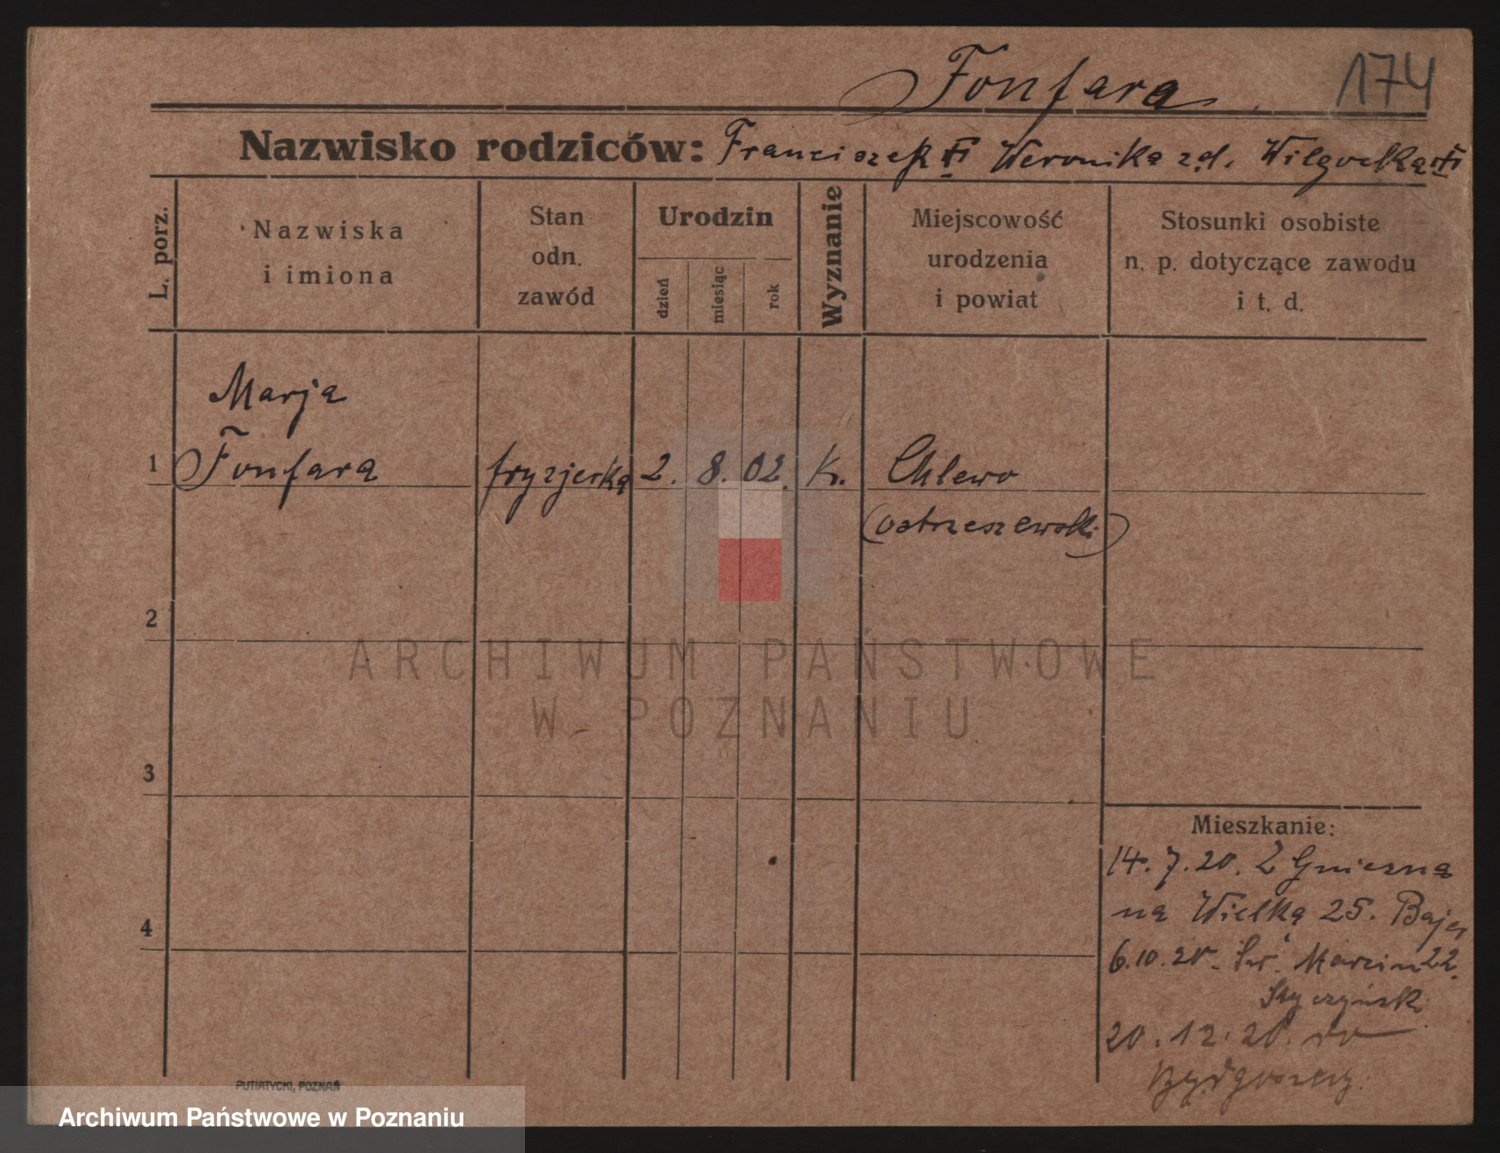 Fonfara
174
Nazwisko rodziców: Franciszek Weronika zd.
L. porz.
Nazwiska
i imiona
Stan
odn.
zawód
Urodzin
dzień
miesiąc
rok
Wyznanie
Miejscowość
urodzenia
i powiat
Stosunki osobiste
n. p. dotyczące zawodu
i t. d.
Marja
1 Fonfara fryzjerka 2. 8. 02. k. Chlewo
(ostrzeszewski)
2
3
4
ARCHIWUM PAŃSTWOWE
W POZNANIU
Mieszkanie:
14. 7. 20. Z Gniezna
na Wielka 25. Bajer
6.10.20. Św. Marcin 22.
20.12.20. do
Bydgoszczy.
PUTIATYCKI, POZNAŃ
Archiwum Państwowe w Poznaniu